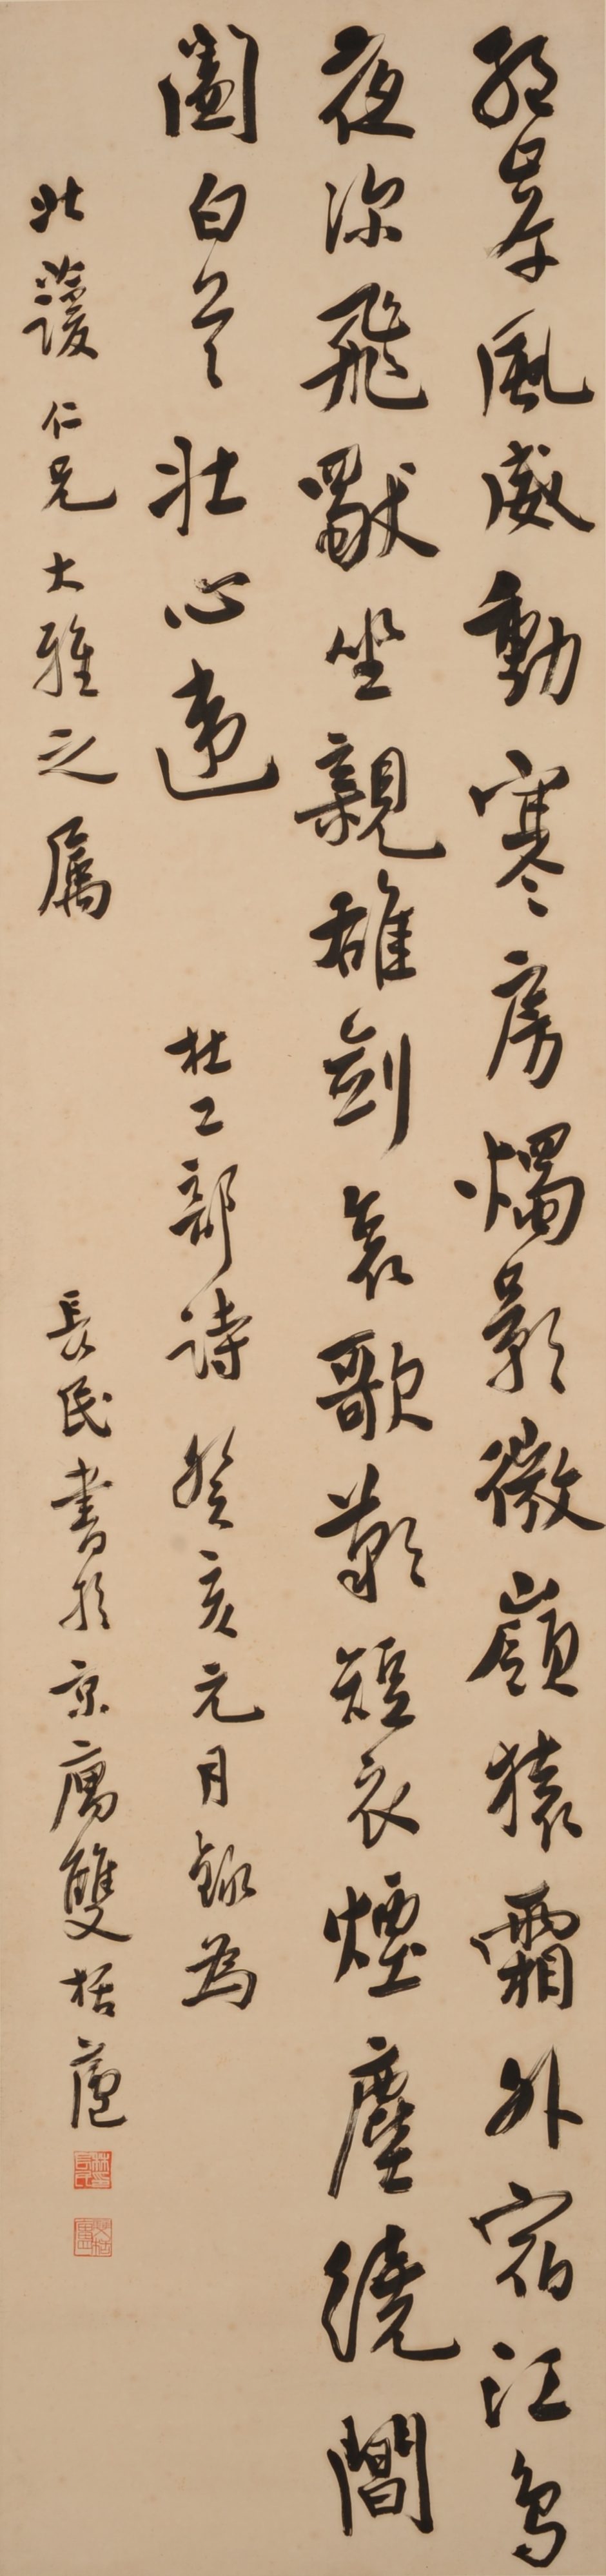 絕岸風威動寒房燭影微嶺猿霜外宿江鳥
夜深飛獸坐親雄劍哀歌歎短衣煙塵繞閶
闔白首壯心違 杜工部詩 癸亥元月錄為
北蘐仁兄大雅之屬 長民書於京寓雙栝廬